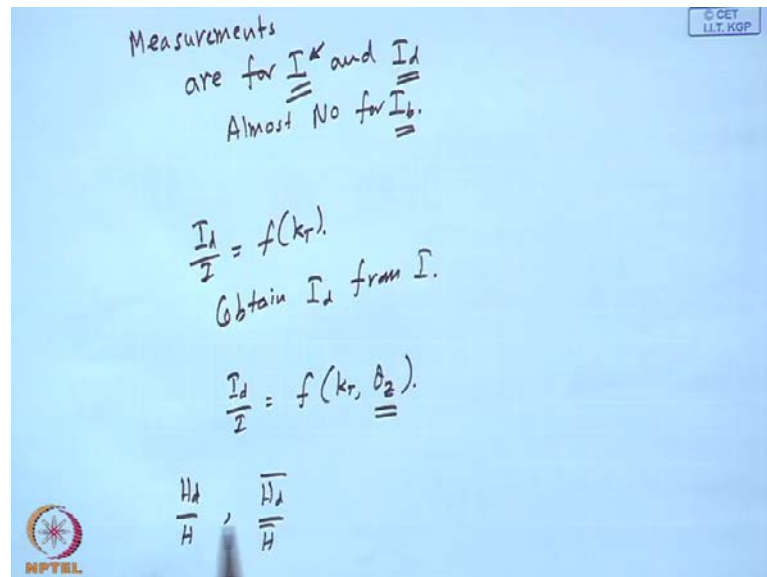 © CET
I.I.T. KGP
Measurements
are for I and Id
Almost No for Ib.
Id/I = f(kT).
Obtain Id from I.
Id/I = f(kT, θz).
Hd/H , H̅d/H̅
NPTEL